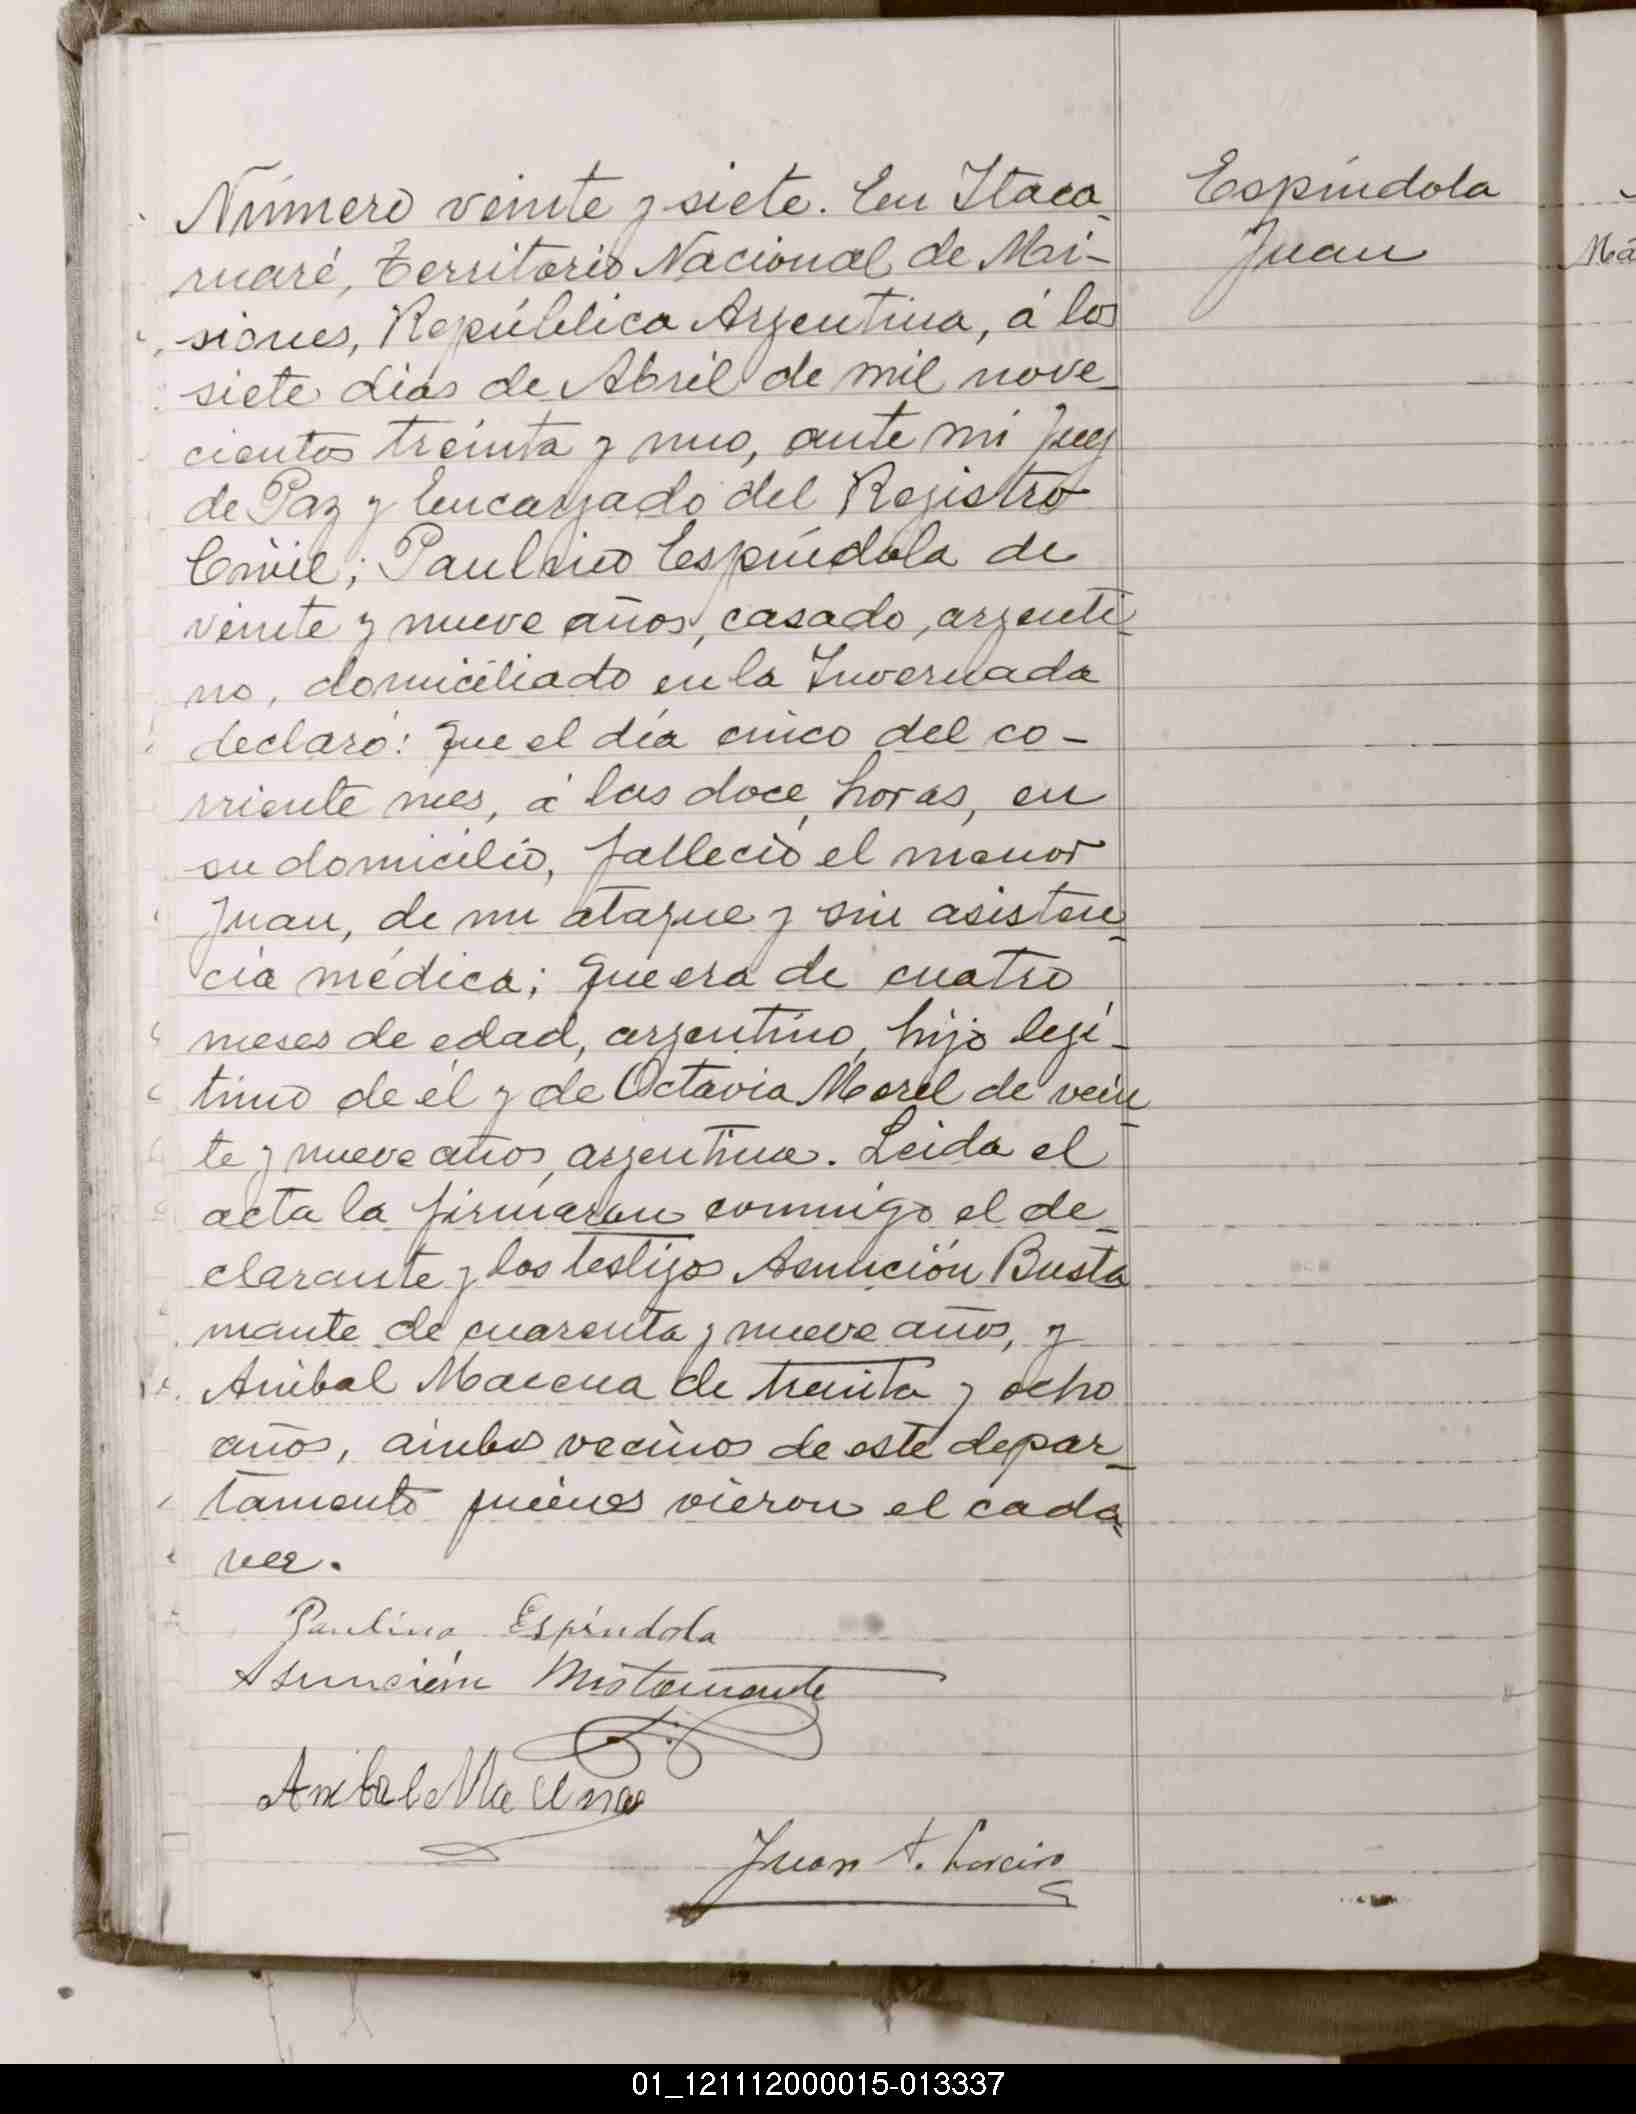 Número veinte y siete. En Itaca-
ruaré, Territorio Nacional de Mi-
siones, República Argentina, á los
siete dias de Abril de mil nove-
cientos treinta y uno, ante mi Juez
de Paz y Encargado del Registro
Civil; Paulino Espíndola de
veinte y nueve años, casado, argenti-
no, domiciliado en la Invernada
declaró: Que el día cinco del co-
rriente mes, á las doce horas, en
su domicilio, falleció el menor
Juan, de un ataque y sin asisten-
cia médica; Que era de cuatro
meses de edad, argentino, hijo legí-
timo de él y de Octavia Morel de vein-
te y nueve años, argentina. Leida el
acta la firmaron conmigo el de-
clarante y los testigos Asunción Busta
mante de cuarenta y nueve años, y
Anibal Maciena de treinta y ocho
años, ambos vecinos de este depar-
tamento quiénes vieron el cadá-
ver.
Paulino Espíndola
Asunción Bustamante
Anibal
Juan A.
Espíndola
Juan
01_121112000015-013337